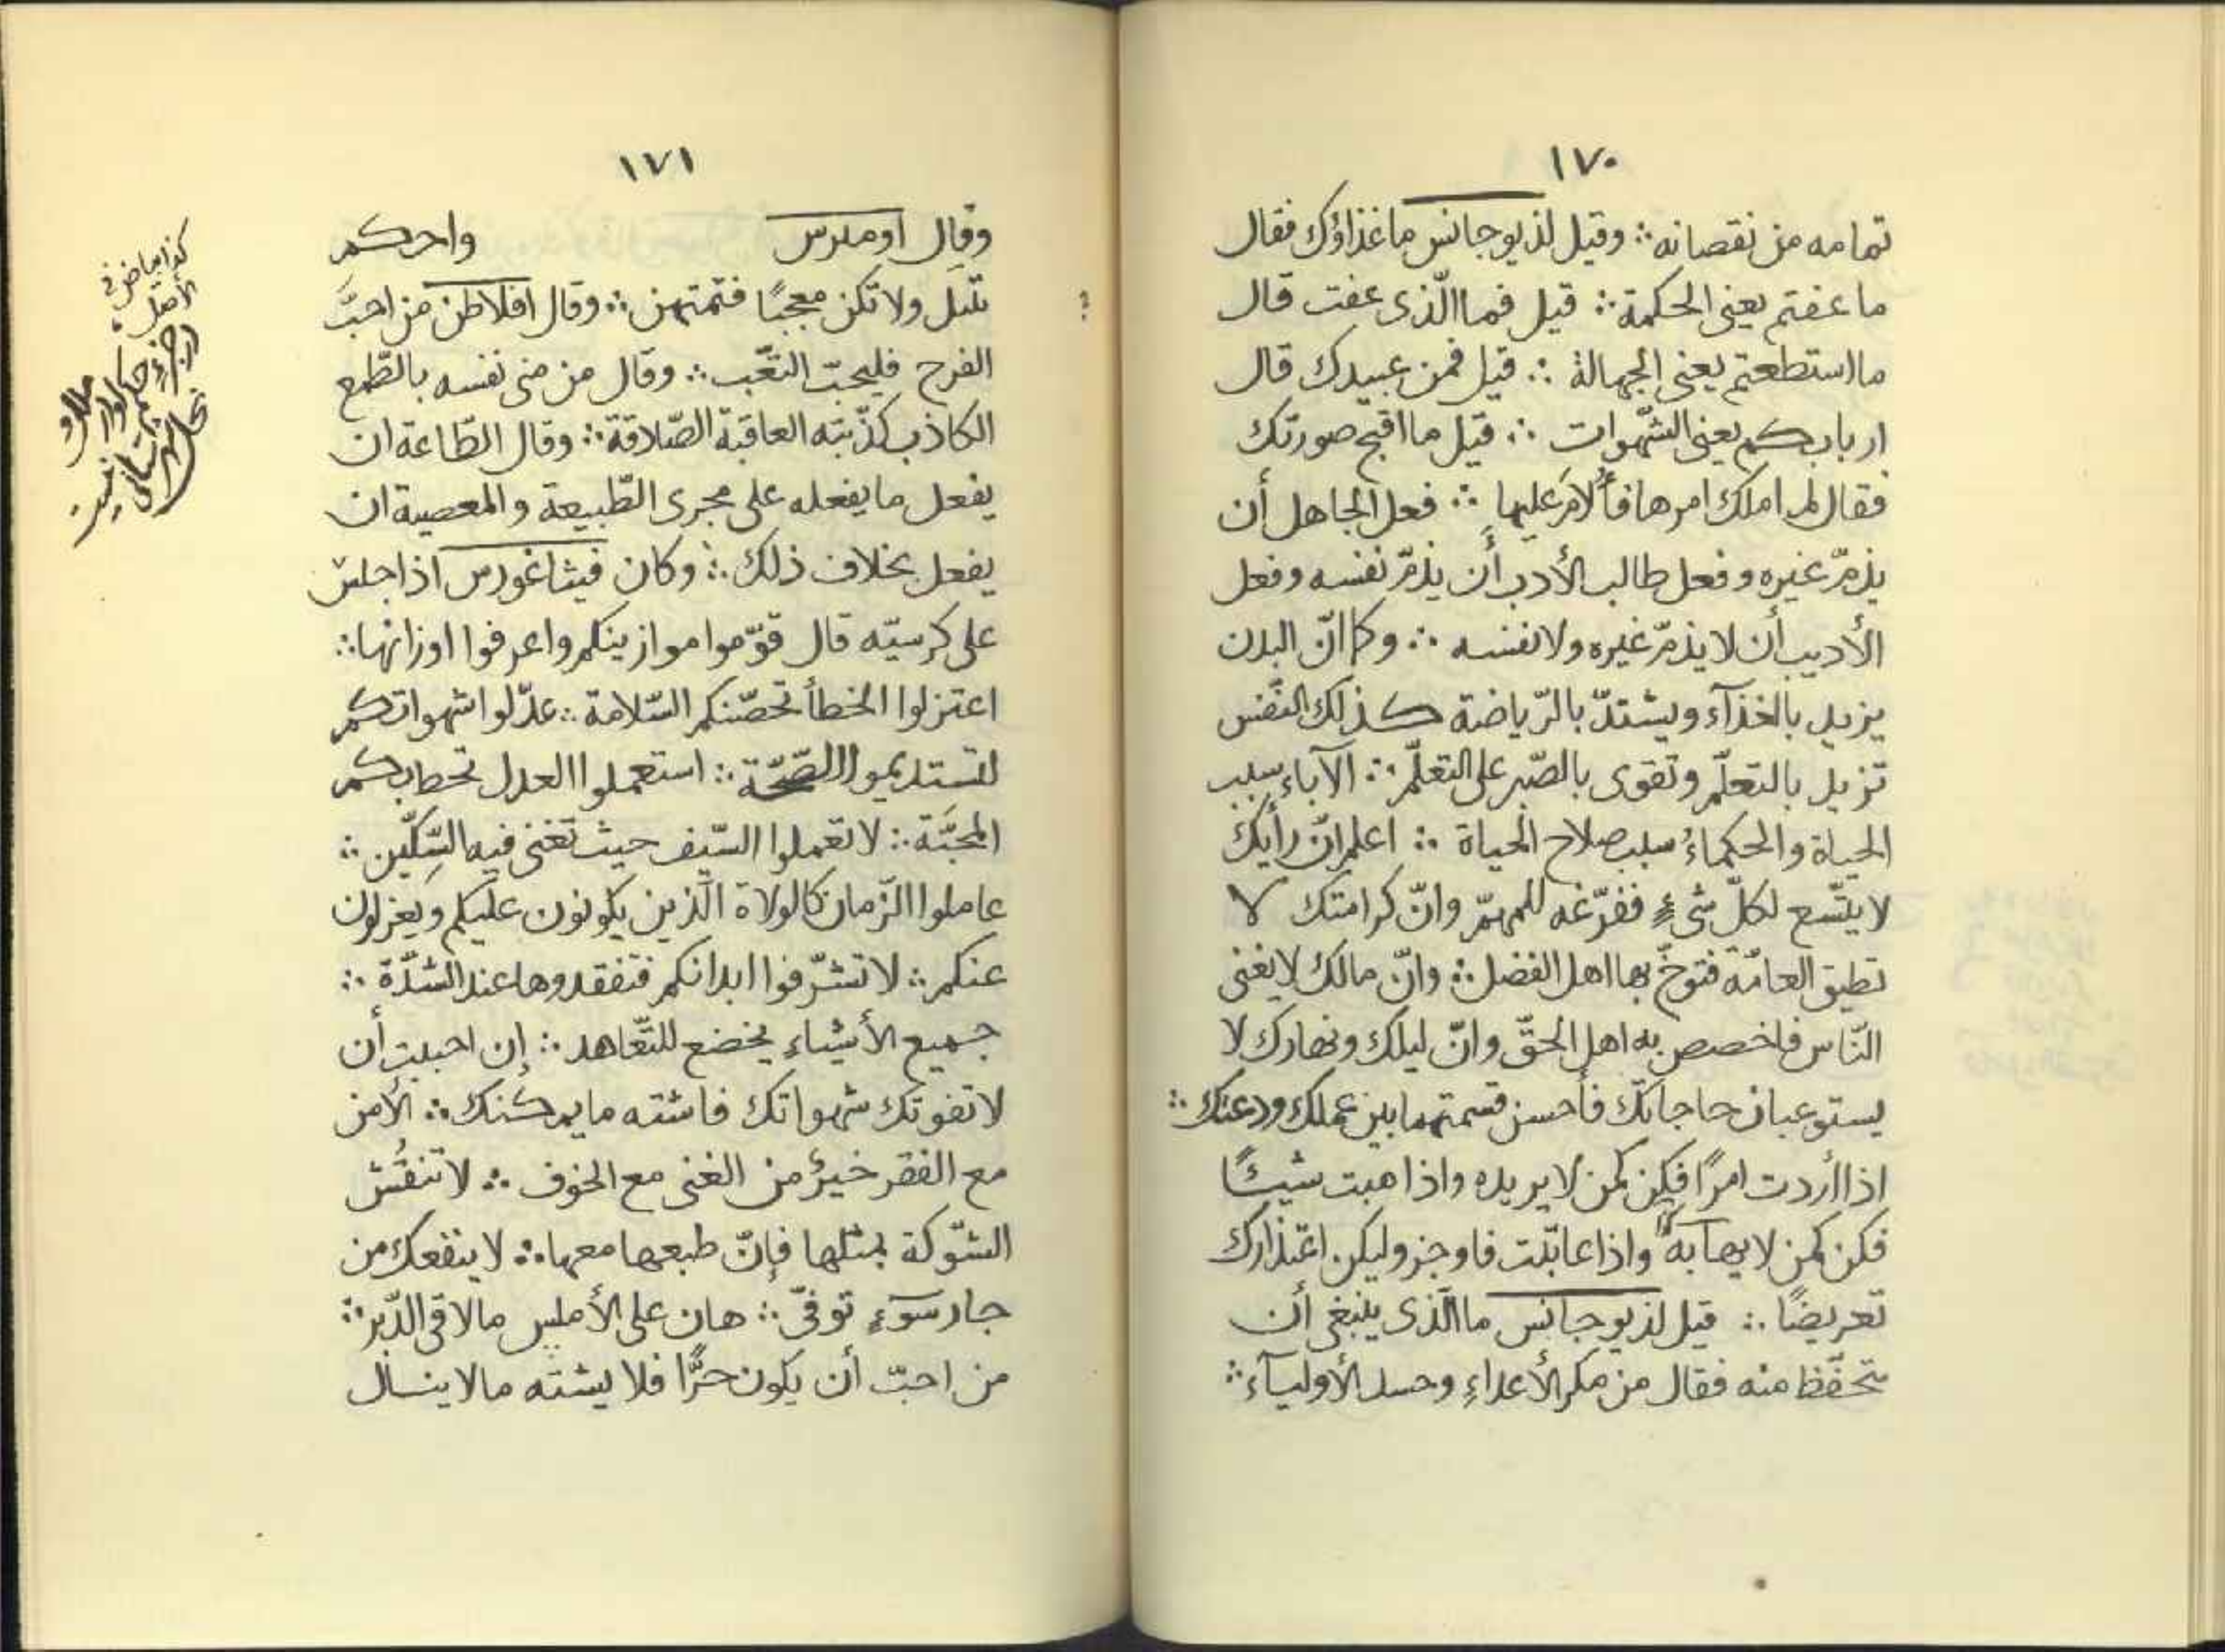 ١٧٠
تمامه من نقصانه ∴ وقيل لذيوجانس ما غذاؤك فقال
ما عفتم يعنى الحكمة ∴ قيل فما الّذى عفت قال
ما استطعتم يعنى الجهالة ∴ قيل فمن عبيدك قال
اربابكم يعنى الشّهوات ∴ قيل ما اقبح صورتك
فقال لم املك امرها فأُلامَ عليها ∴ فعل الجاهل أن
يذمّ غيره وفعل طالب الأدب أن يذمّ نفسه وفعل
الأديب أن لا يذمّ غيره ولا نفسه ∴ وكما انّ البدن
يزيد بالغذآء ويشتدّ بالرّياضة كذلك النّفس
تزيد بالتعلّم وتقوى بالصّبر على التعلّم ∴ الآباء سبب
الحياة والحكماءُ سبب صلاح الحياة ∴ اعلم انّ رأيك
لا يتّسع لكلّ شىءٍ ففرّغه للمهمّ وانّ كرامتك لا
تطيق العامّة فتوخّ بها اهل الفضل ∴ وانّ مالك لا يغنى
النّاس فاخصص به اهل الحقّ وانّ ليلك ونهارك لا
يستوعبان حاجاتك فأحسن قسمتهما بين عملك ودعتك ∴
اذا أردت امرًا فكن كمن لا يريده واذا هبت شيئًا
فكن كمن لا يهابه واذا عاتبت فاوجز وليكن اعتذارك
تعريضًا ∴ قيل لذيوجانس ما الّذى ينبغى أن
يتحفّظ منه فقال من مكر الأعداءِ وحسد الأوليآء ∴
١٧١
وقال اومدرس واحركم
تنبَل ولا تكن معجبًا فتمتهن ∴ وقال افلاطن من احبَّ
الفرح فليحبّ التعَّب ∴ وقال من منى نفسه بالطّمع
الكاذب كذّبته العاقبة الصّادقة ∴ وقال الطّاعة ان
يفعل ما يفعله على مجرى الطّبيعة والمعصية ان
يفعل بخلاف ذلك ∴ وكان فيثاغورس اذا جلس
على كرسيّه قال قوّموا موازينكم واعرفوا اوزانها ∴
اعتزلوا الخطأ تحصّنكم السّلامة ∴ عدّلوا شهواتكم
لتستديموا الصّحّة ∴ استعملوا العدل تحط بكم
المحبَّة ∴ لا تعملوا السّيف حيث تغنى فيه السّكّين ∴
عاملوا الزّمان كالولاة الّذين يكونون عليكم ويعزلون
عنكم ∴ لا تشرّفوا ابدانكم فتفقدوها عند الشدّة ∴
جميع الأشياء يخضع للتّعاهد ∴ إن احببت أن
لا تفوتك شهواتك فاشته ما يمكنك ∴ الأمن
مع الفقر خيرٌ من الغنى مع الخوف ∴ لا تنقُش
الشّوكة بمثلها فإنّ طبعها معها ∴ لا ينفعك من
جار سوءٍ توقّى ∴ هان على الأملس ما لاقى الدّبر ∴
من احبّ أن يكون حرًّا فلا يشته ما لا ينال
كذا بياض فى
الأصل